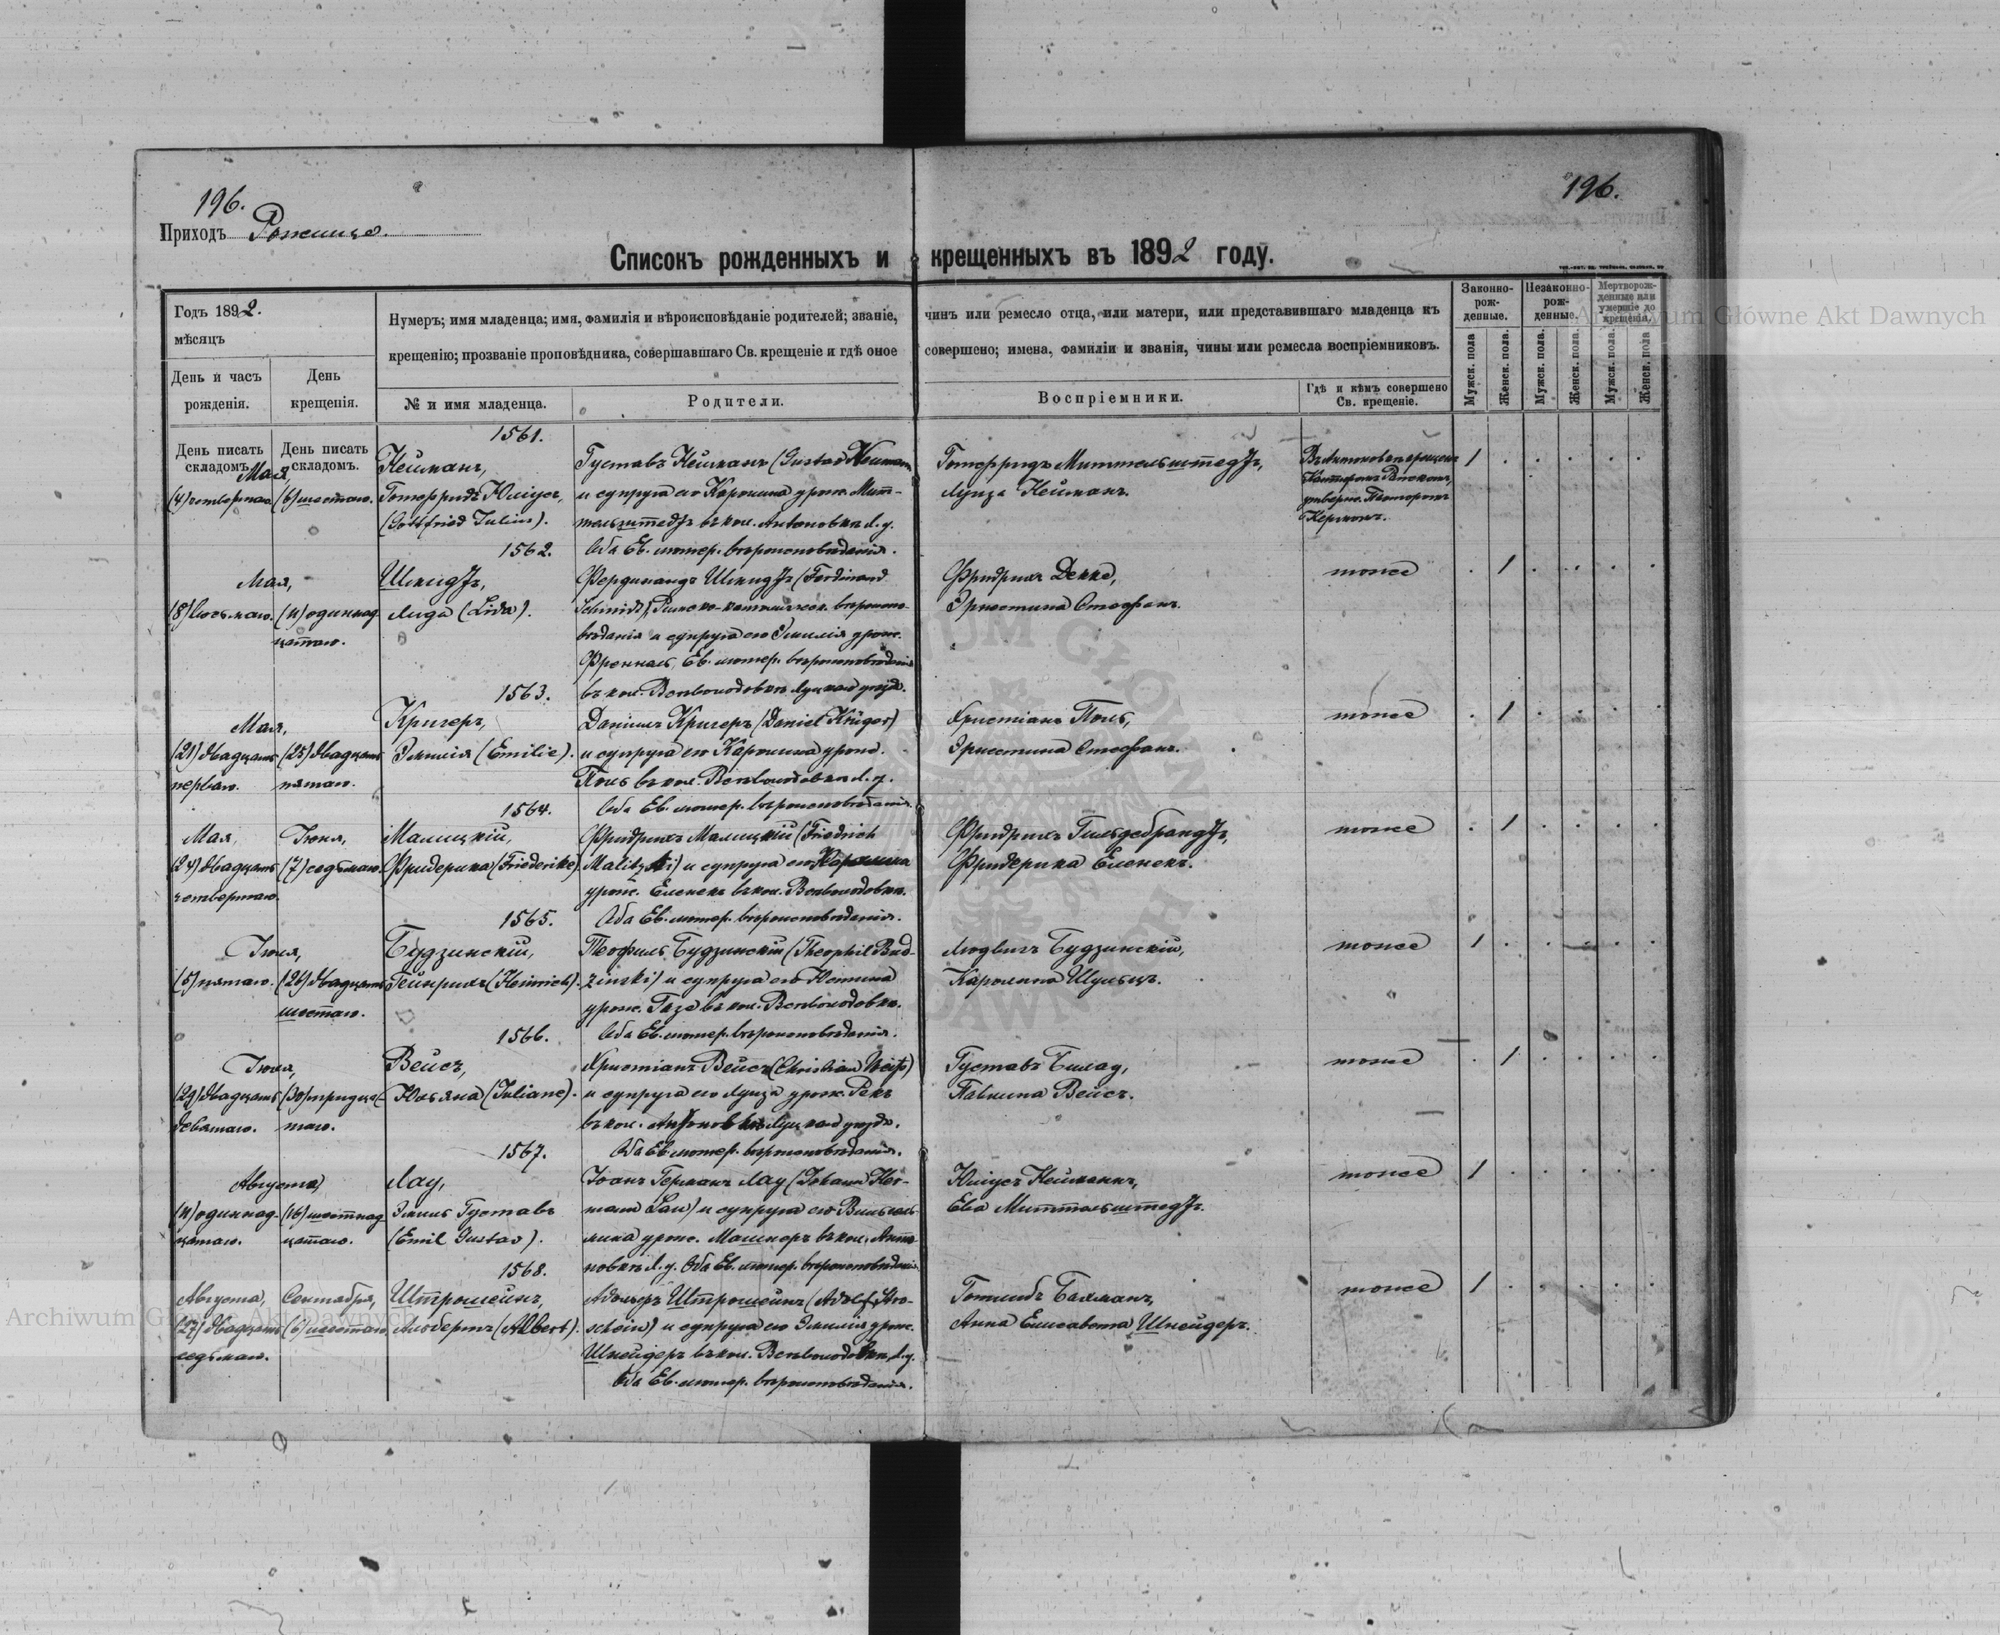 196.
196.
Приходъ Рожище.
Списокъ рожденныхъ и крещенныхъ въ 1892 году.
Годъ 1892.
мѣсяцъ
День и часъ рожденія.
День крещенія.
Нумеръ; имя младенца; имя, фамилія и вѣроисповѣданіе родителей; званіе, чинъ или ремесло отца, или матери, или представившаго младенца къ
крещенію; прозваніе проповѣдника, совершавшаго Св. крещеніе и гдѣ оное совершено; имена, фамиліи и званія, чины или ремесла воспріемниковъ.
№ и имя младенца.
Родители.
Воспріемники.
Гдѣ и кѣмъ совершено
Св. крещеніе.
Законно-
рож-
денные.
Незаконно-
рож-
денные.
Мертворож-
денные или
умершіе до
крещенія.
Мужск. пола
Женск. пола.
Мужск. пола.
Женск. пола.
Мужск. пола.
Женск. пола
День писать
складомъ.
День писать
складомъ.
1561.
Мая,
(4) четвертаго.
(6) шестаго.
Нейманъ,
Готфридъ Юліусъ,
(Gottfried Julius).
Густавъ Нейманъ (Gustav Neumann
и супруга его Каролина урож. Мит-
тельштедтъ въ кол. Антоновкѣ Л. у.
Оба Ев. лютер. вѣроисповѣданія.
Готфридъ Миттельштедтъ,
Луиза Нейманъ.
Въ Антоновкѣ крещенъ
Пасторомъ
Керномъ.
1
1562.
Мая,
(8) восьмаго.
(11) одиннад-
цатаго.
Шмидтъ,
Лида (Lida).
Фердинандъ Шмидтъ (Ferdinand
Schmidt) Римско-католическ. вѣроиспо-
вѣданія и супруга его Эмилія урож.
Френкель, Ев. лютер. вѣроисповѣданія
въ кол. Всеволодовкѣ Луцкаго уѣзда.
Фридрихъ Декке,
Эрнестина Стефанъ.
тоже
1
1563.
Мая,
(21) двадцать
перваго.
(25) двадцать
пятаго.
Кригеръ,
Эмилія (Emilie).
Даніилъ Кригеръ (Daniel Krüger)
и супруга его Каролина урожд.
Поль въ кол. Всеволодовкѣ Л. у.
Оба Ев. лютер. вѣроисповѣданія.
Христіанъ Поль,
Эрнестина Стефанъ.
тоже
1
1564.
Мая,
(24) двадцать
четвертаго.
Іюня,
(7) седьмаго.
Малицкій,
Фридерика (Friederike).
Фридрихъ Малицкій (Friedrich
Malitzki) и супруга его Каролина
урож. Еленекъ въ кол. Всеволодовкѣ.
Оба Ев. лютер. вѣроисповѣданія.
Фридрихъ Гильдебрандтъ,
Фридерика Еленекъ.
тоже
1
1565.
Іюля,
(5) пятаго.
(26) двадцать
шестаго.
Будзинскій,
Гейнрихъ (Heinrich).
Теофилъ Будзинскій (Theophil Bud-
zinski) и супруга его Юстина
урож. Газе въ кол. Всеволодовкѣ.
Оба Ев. лютер. вѣроисповѣданія.
Людвигъ Будзинскій,
Каролина Шульцъ.
тоже
1
1566.
Іюля,
(29) двадцать
девятаго.
(30) тридца-
таго.
Вейсъ,
Юльяна (Juliane).
Христіанъ Вейсъ (Christian Weiß)
и супруга его Луиза урож. Рекъ
въ кол. Антоновкѣ Луцкаго уѣзда.
Оба Ев. лютер. вѣроисповѣданія.
Густавъ Билау,
Павлина Вейсъ.
тоже
1
1567.
Августа,
(11) одиннад-
цатаго.
(16) шестнад-
цатаго.
Лау,
Эмиль Густавъ
(Emil Gustav).
Іоанъ Германъ Лау (Johann Her-
mann Lau) и супруга его Вильгель-
мина урож. Машнеръ въ кол. Анто-
новкѣ Л. у. Оба Ев. лютер. вѣроисповѣданія.
Юліусъ Нейманъ,
Ева Миттельштедтъ.
тоже
1
1568.
Августа,
(27) двадцать
седьмаго.
Сентября,
(6) шестаго.
Штрошейнъ,
Альбертъ (Albert).
Адольфъ Штрошейнъ (Adolf Stro-
schein) и супруга его Эмилія урож.
Шнейдеръ въ кол. Всеволодовкѣ, Л. у.
Оба Ев. лютер. вѣроисповѣданія.
Готлибъ Балманъ,
Анна Елисавета Шнейдеръ.
тоже
1
Archiwum Główne Akt Dawnych
Archiwum Główne Akt Dawnych